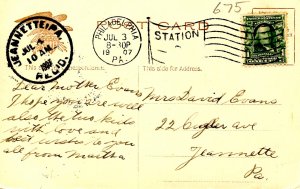 675
POST CARD
JEANNETTE, PA.
JUL
10 AM
1907
REC'D.
PHILADELPHIA
JUL 3
6-30P
1907
PA.
STATION
This side is for the Address.
Dear Mother Evans
I hope you are well
also the two kids
with love and
best wishes to you
all from Martha
Mrs David Evans
22 Cuyler ave
Jeannette
Pa.